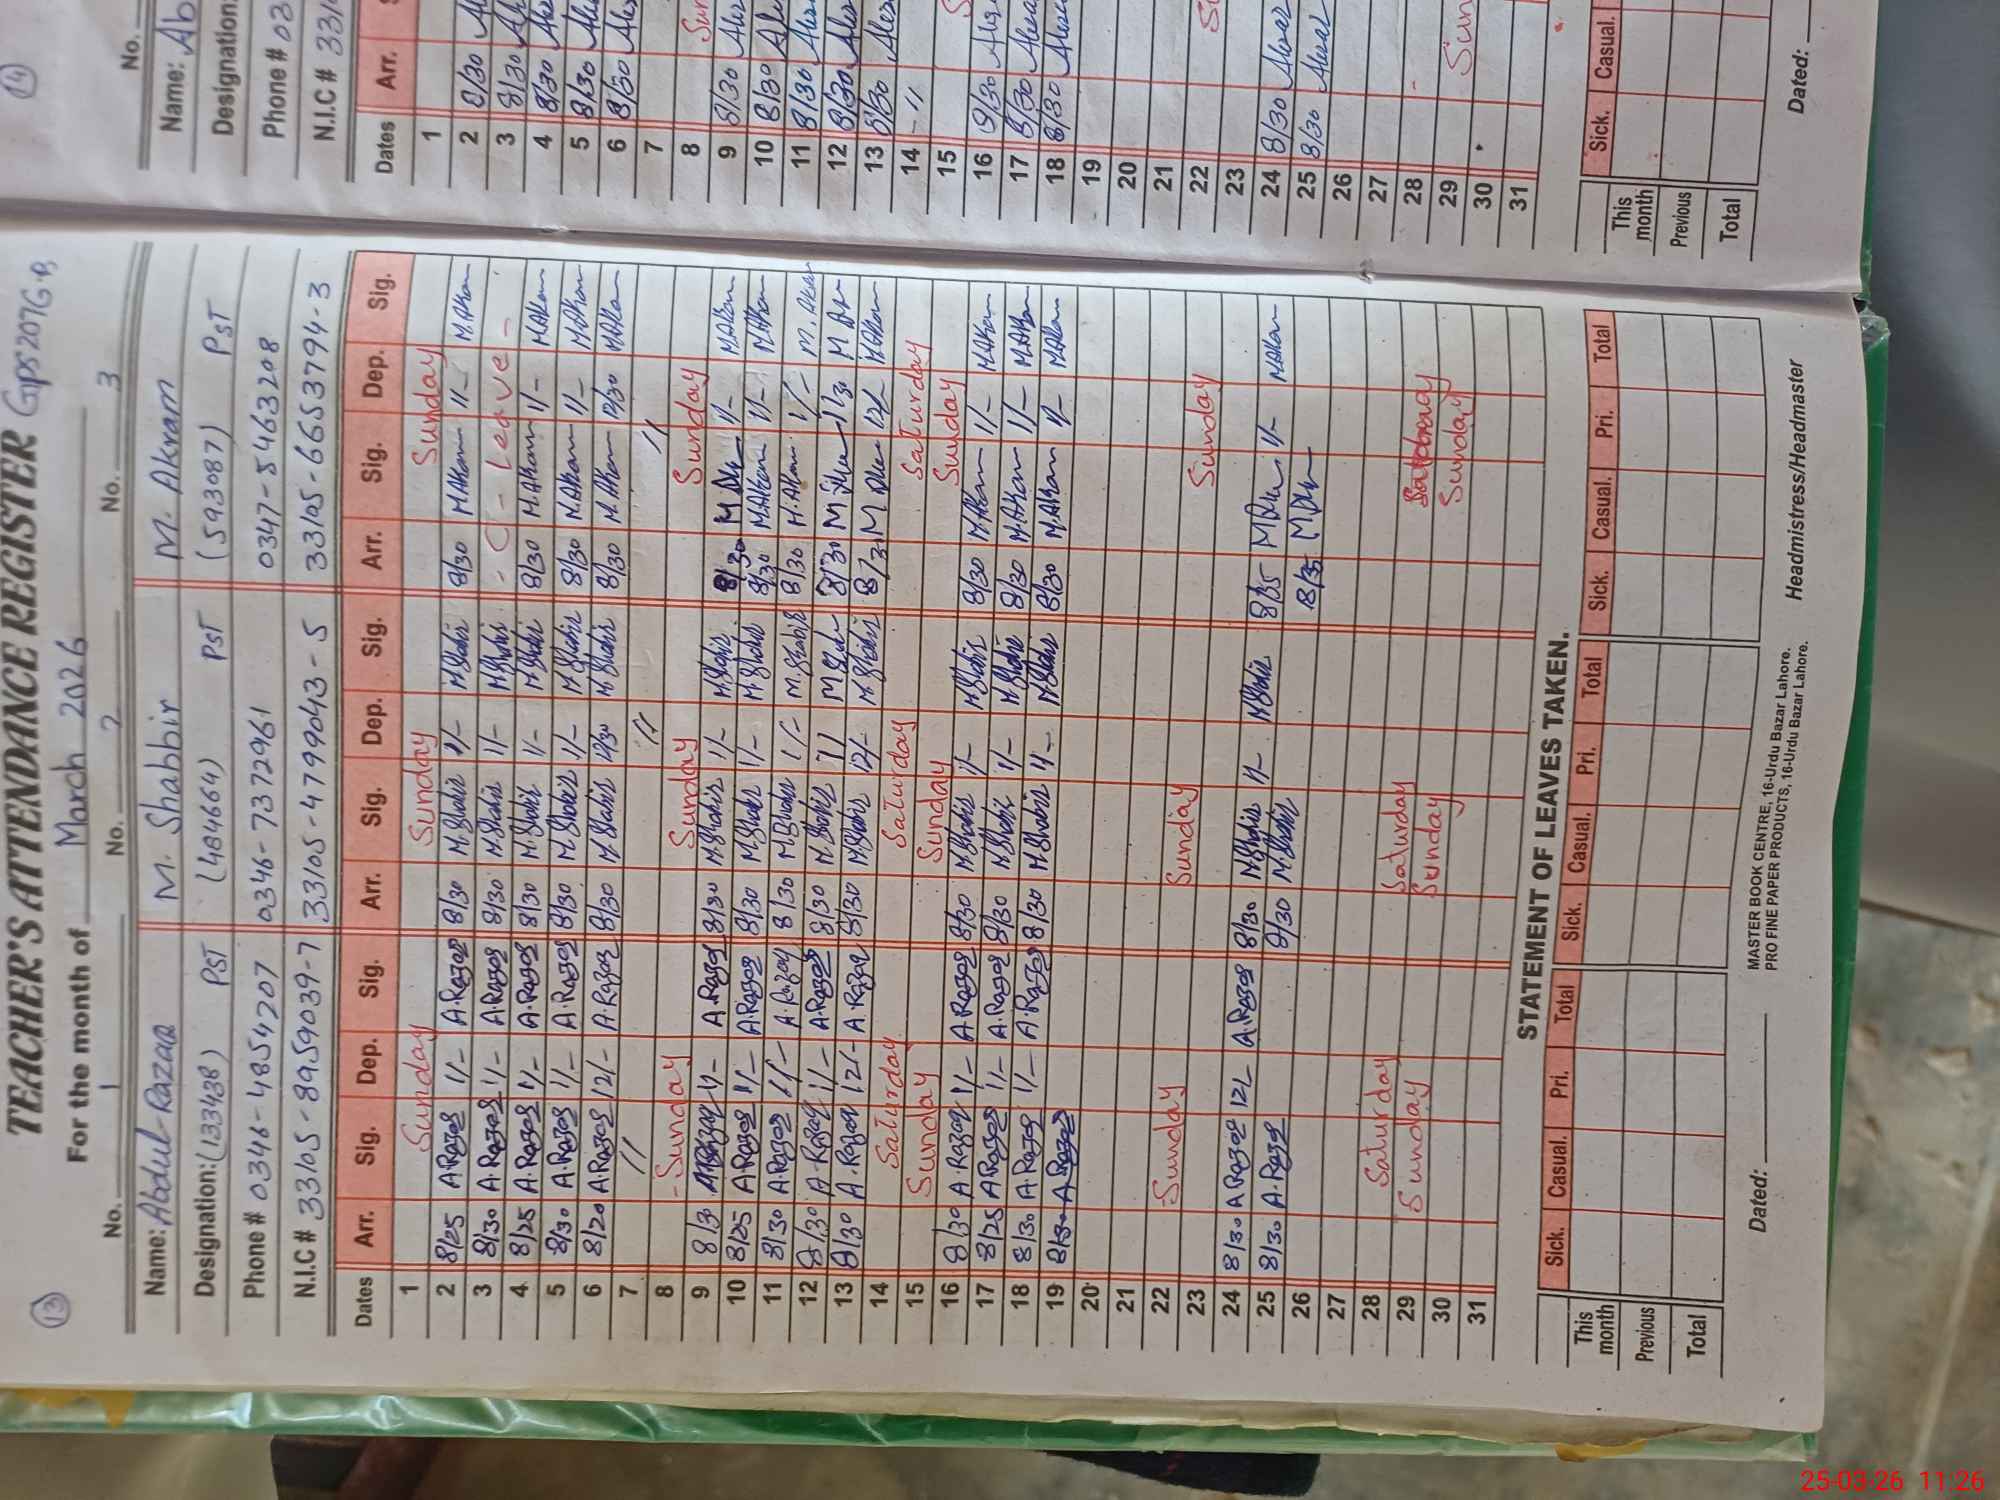 13
TEACHER'S ATTENDANCE REGISTER GPS 207 G.B
For the month of March 2026
No. 1 No. 2 No. 3
Name: Abdul Razaq M. Shabbir M. Akram
Designation: (133438) PST (484664) PST (593087) PST
Phone # 0346-4854207 0346-7372961 0347-5463208
N.I.C # 33105-8959039-7 33105-4799043-5 33105-6653794-3
Dates Arr. Sig. Dep. Sig. Arr. Sig. Dep. Sig. Arr. Sig. Dep. Sig.
1 Sunday Sunday Sunday
2 8/25 A.Razaq 1/- A.Razaq 8/30 M.Shabir 1/- M.Shabir 8/30 M.Akram 1/- M.Akram
3 8/30 A.Razaq 1/- A.Razaq 8/30 M.Shabir 1/- M.Shabir - C - Leave -
4 8/25 A.Razaq 1/- A.Razaq 8/30 M.Shabir 1/- M.Shabir 8/30 M.Akram 1/- M.Akram
5 8/30 A.Razaq 1/- A.Razaq 8/30 M.Shabir 1/- M.Shabir 8/30 M.Akram 1/- M.Akram
6 8/20 A.Razaq 12/- A.Razaq 8/30 M.Shabir 12/30 M.Shabir 8/30 M.Akram 12/30 M.Akram
7 // // //
8 -Sunday Sunday Sunday
9 8/30 A.Razaq 1/- A.Razaq 8/30 M.Shabir 1/- M.Shabir 8/30 M 1/- M.Akram
10 8/25 A.Razaq 1/- A.Razaq 8/30 M.Shabir 1/- M.Shabir 8/30 M.Akram 1/- M.Akram
11 8/30 A.Razaq 1/- A.Razaq 8/30 M.Shabir 1/- M.Shabir 8/30 M.Akram 1/- M.Akram
12 8/30 A.Razaq 1/- A.Razaq 8/30 M.Shabir M. 8/30 M M
13 8/30 A.Razaq 12/- A.Razaq 8/30 M.Shabir 12/- M.Shabir 8/30 M 12/- M.Akram
14 Saturday Saturday Saturday
15 Sunday Sunday Sunday
16 8/30 A.Razaq 1/- A.Razaq 8/30 M.Shabir 1/- M.Shabir 8/30 M.Akram 1/- M.Akram
17 8/25 A.Razaq 1/- A.Razaq 8/30 M.Shabir 1/- M.Shabir 8/30 M.Akram 1/- M.Akram
18 8/30 A.Razaq 1/- A.Razaq 8/30 M.Shabir 1/- M.Shabir 8/30 M.Akram 1/- M.Akram
19 8/30 A.Razaq
20
21
22 -Sunday Sunday Sunday
23
24 8/30 A.Razaq 12/- A.Razaq 8/30 M.Shabir 1/- M.Shabir 8/25 M 1/- M.Akram
25 8/30 A.Razaq 8/30 M.Shabir 8/35 M
26
27
28 Saturday Saturday Saturday
29 Sunday Sunday Sunday
30
31
STATEMENT OF LEAVES TAKEN.
Sick. Casual. Pri. Total Sick. Casual. Pri. Total Sick. Casual. Pri. Total
This month
Previous
Total
MASTER BOOK CENTRE, 16-Urdu Bazar Lahore.
PRO FINE PAPER PRODUCTS, 16-Urdu Bazar Lahore.
Dated: Headmistress/Headmaster
14
No.
Name: Ab
Designation:
Phone # 03
N.I.C # 331
Dates Arr. S
1
2 8/30
3 8/30
4 8/30
5 8/30
6 8/30
7
8 Sun
9 8/30
10 8/30
11 8/30
12 8/30
13 8/30
14 - //
15 S
16 8/30
17 8/30
18 8/30
19
20
21
22 S
23
24 8/30
25 8/30
26
27
28 -
29 Sun
30
31
Sick. Casual.
This month
Previous
Total
Dated:
25-03-26 11:26